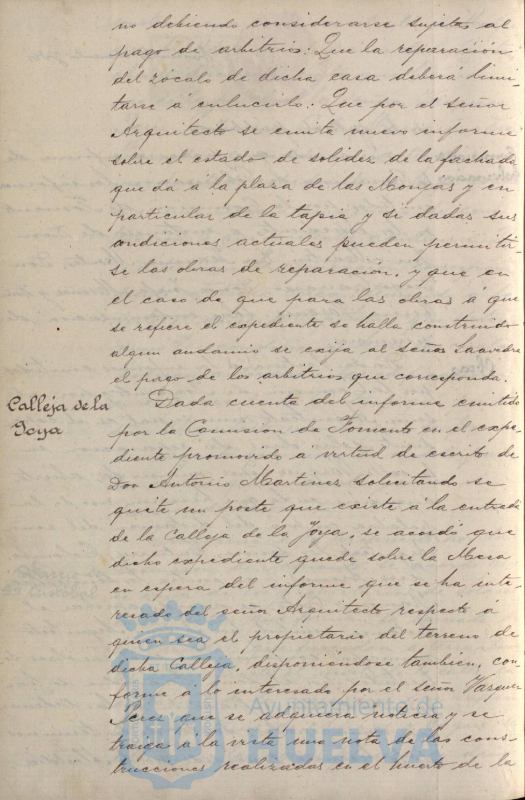 no debiendo considerarse sujetas al
pago de arbitrios: Que la reparación
del zócalo de dicha casa deberá limi-
tarse á enlucirlo: Que por el señor
Arquitecto se emita nuevo informe
sobre el estado de solidez de la fachada
que dá á la plaza de las Monjas y en
particular de la tapia y si dadas sus
condiciones actuales pueden permitir-
se las obras de reparación, y que en
el caso de que para las obras á que
se refiere el expediente se halla construido
algun andamio se exija al señor Saavedra
el pago de los arbitrios que corresponda.
Calleja de la
Joya
Dada cuenta del informe emitido
por la Comision de Fomento en el expe-
diente promovido á virtud de escrito de
Don Antonio Martinez solicitando se
quite un poste que existe á la entrada
de la Calleja de la Joya, se acordó que
dicho expediente quede sobre la Mesa
en espera del informe que se ha inte-
resado del señor Arquitecto respecto á
quien sea el propietario del terreno de
dicha Calleja, disponiéndose tambien, con
forme á lo interesado por el señor Vazquez
Perez que se adquiera noticia y se
traiga á la vista una nota de las cons-
trucciones realizadas en el huerto de la
Ayuntamiento de
HUELVA